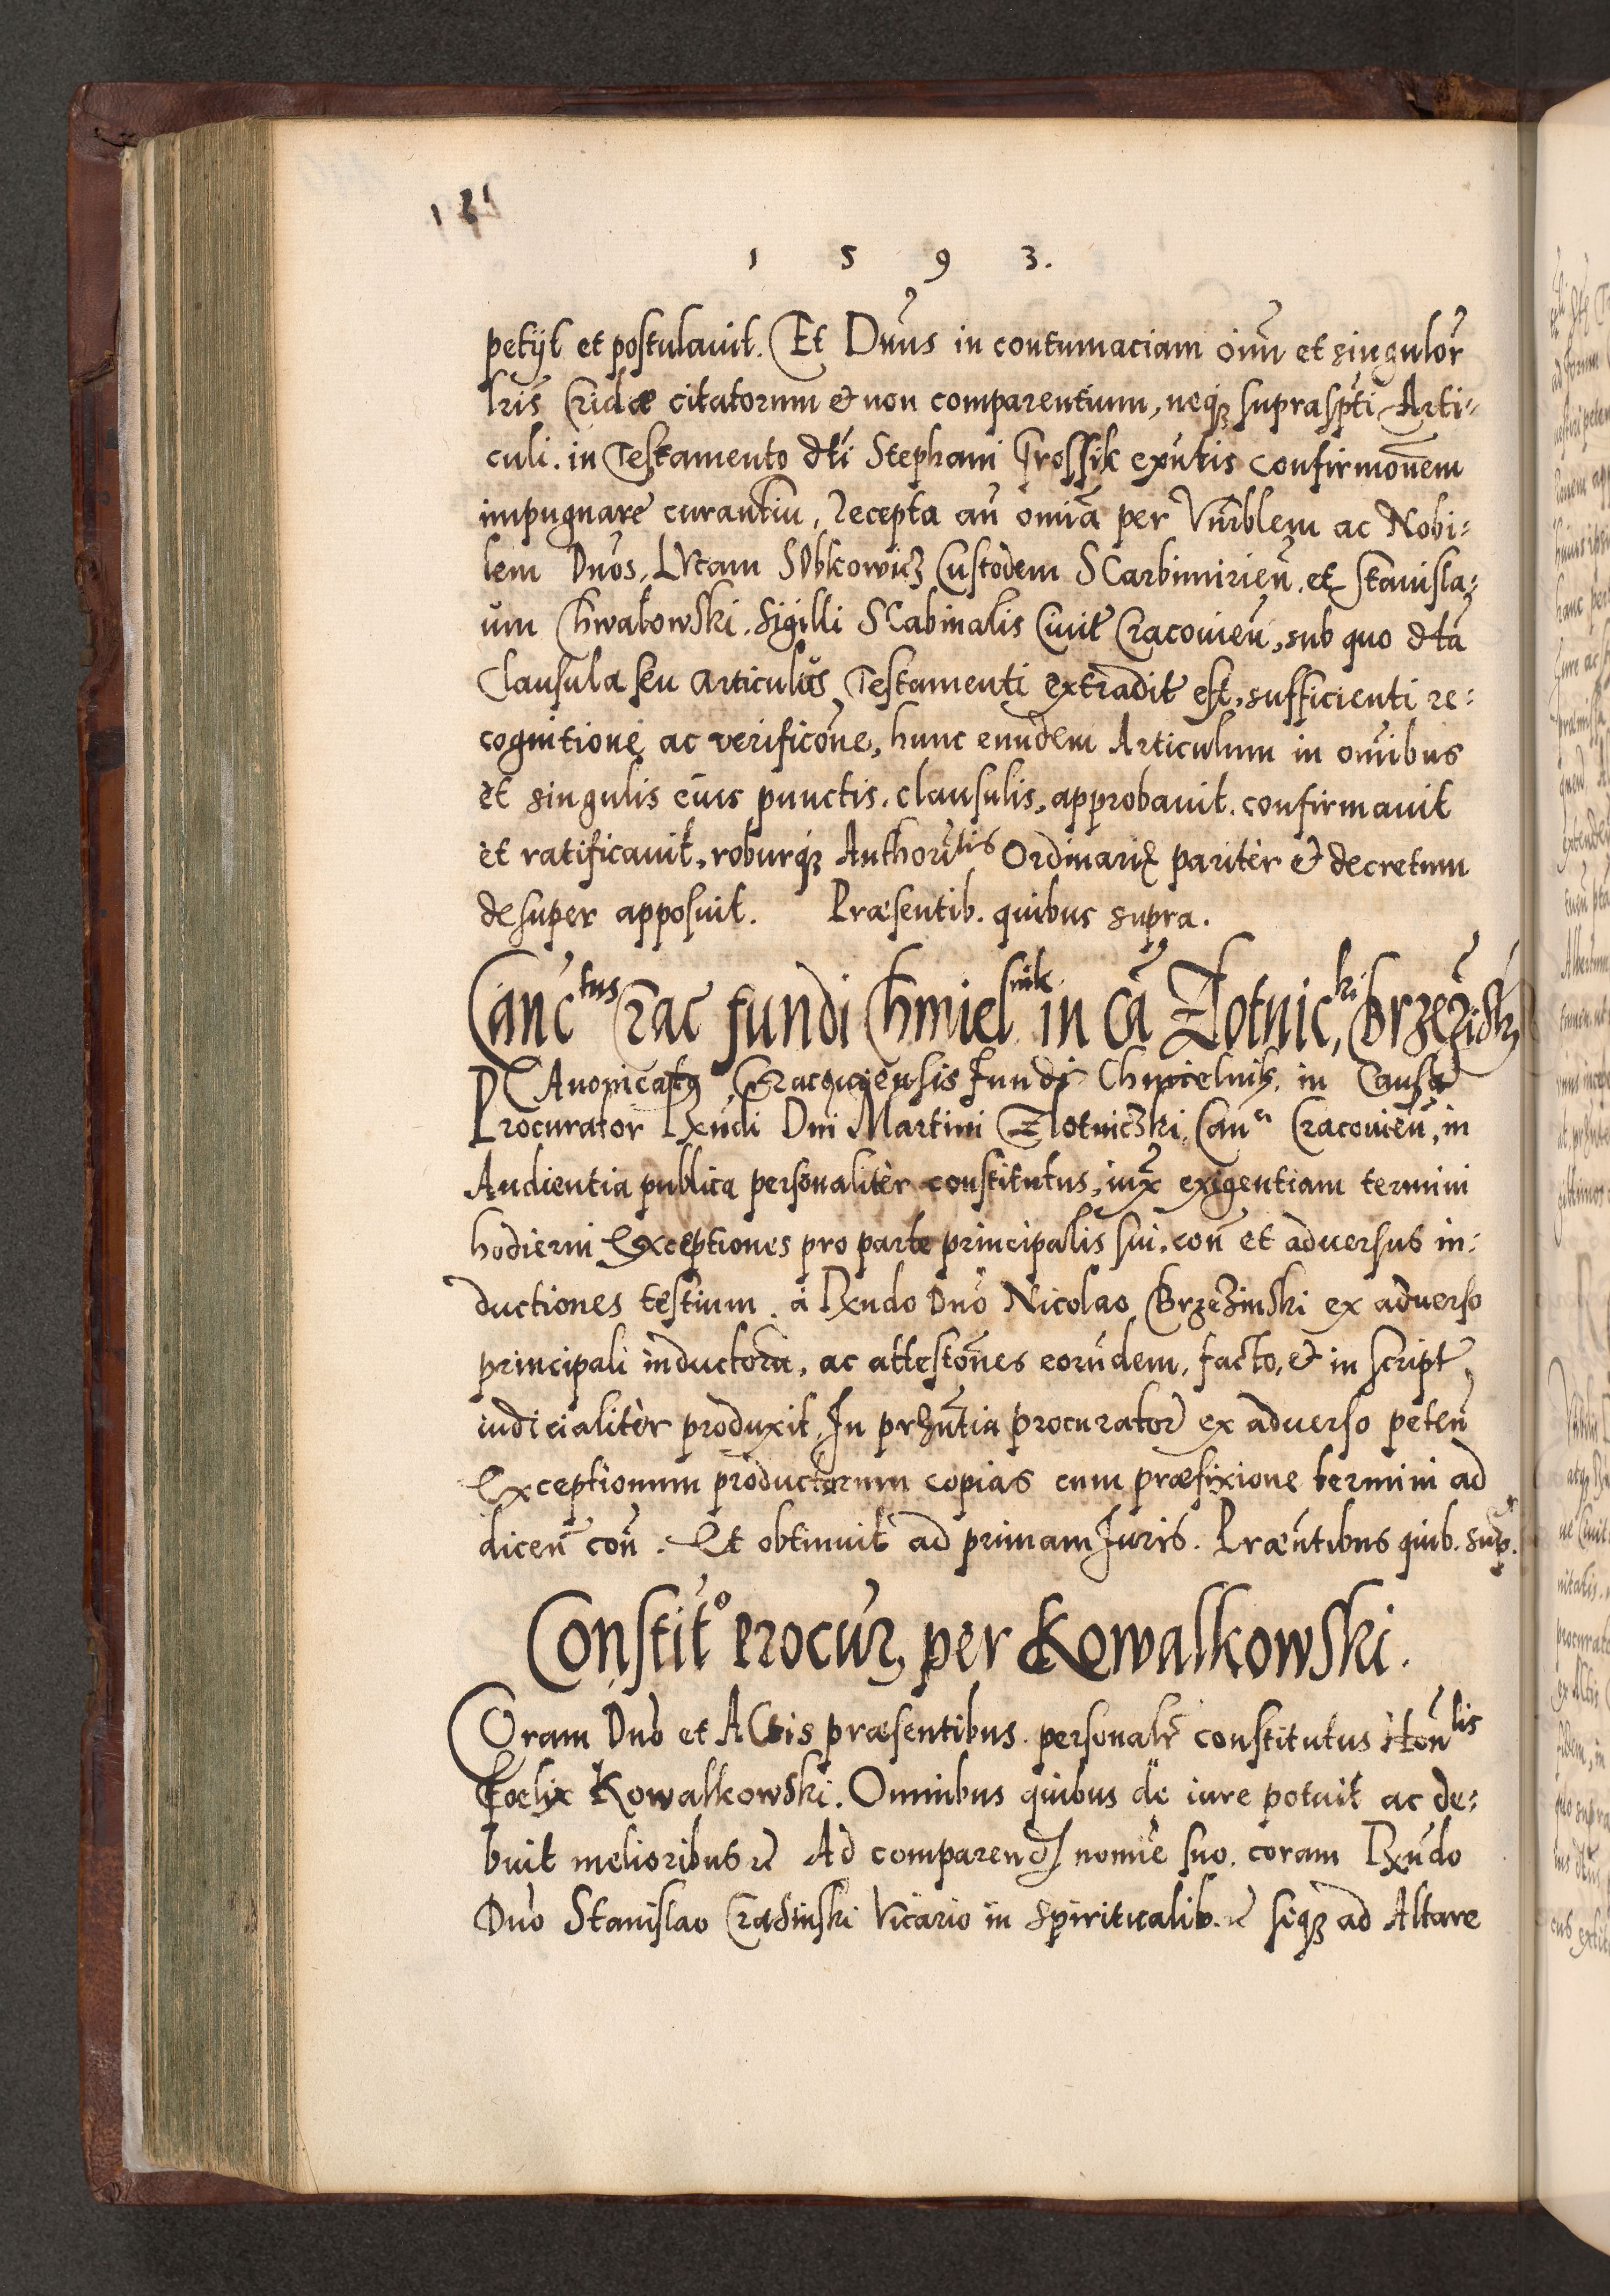 1 5 9 3.
petijt et postulauit. Et Dnūs in contumaciam oīm et singulor̄
lrīs Cridæ citatorum & non comparentium, neqȝ supraspt̄i Arti⸗
culi. in Testamento dt̄i Stephani Grossik exn̄tis confirmōnem
impugnare curantiū, recepta an̄ omīa per Vn̄rblem ac Nobi⸗
lem Dnōs, LVcam SObkowicz Custodem SCarbimirien̄. et Stanisla⸗
um Chwabowski. Sigilli SCabinalis Ciuit̄ Cracouien̄, sub quo dt̄a
Clausula seu Articulus Testamenti extradit̄ est, sufficienti re⸗
cognitione ac verificōne, hunc eundem Articulum in omībus
et singulis eius punctis. clausulis, approbauit. confirmauit
et ratificauit, roburqȝ Authorītis Ordinariæ pariter & decretum
desuper apposuit. Præsentib. quibus supra.
Canc̄tus Crac̄ fundi Chmielnik in cā Zlotnicki, Brzeziński
CAnonicatus Cracouiensis Fundi Chmielnik. in Causa
Procurator Rxn̄di Dnī Martini Zlotniczki, Can̄ci Cracouien̄, in
Audientia publica personaliter constitutus, iux̄ exigentiam termini
hodierni Exceptiones pro parte principalis sui. con̄ et adversus in⸗
ductiones testium. à Rxn̄do Dnō Nicolao Brzezinski ex adverso
principali inductorū, ac attestōnes eorūdem, facto, & in script̄
iudicialiter produxit. In prȝn̄tia procurator̄ ex adverso peten̄
Exceptionum productorum copias cum præfixione termini ad
dicen̄ con̄. Et obtinuit ad primam Juris. Præn̄tibus quib. sup.
Constit̄o Procur, per Kowalkowski.
COram Dnō et ACtis præsentibus. personalr̄ constitutus Hon̄lis
Foelix Kowalkowski. Omnibus quibus de iure potuit ac de⸗
buit melioribus etc̄ Ad comparend̄ nomīe suo. coram Rxn̄do
Dnō Stanislao Crasinski Vicario in spiritualib. etc̄ siqȝ ad Altare